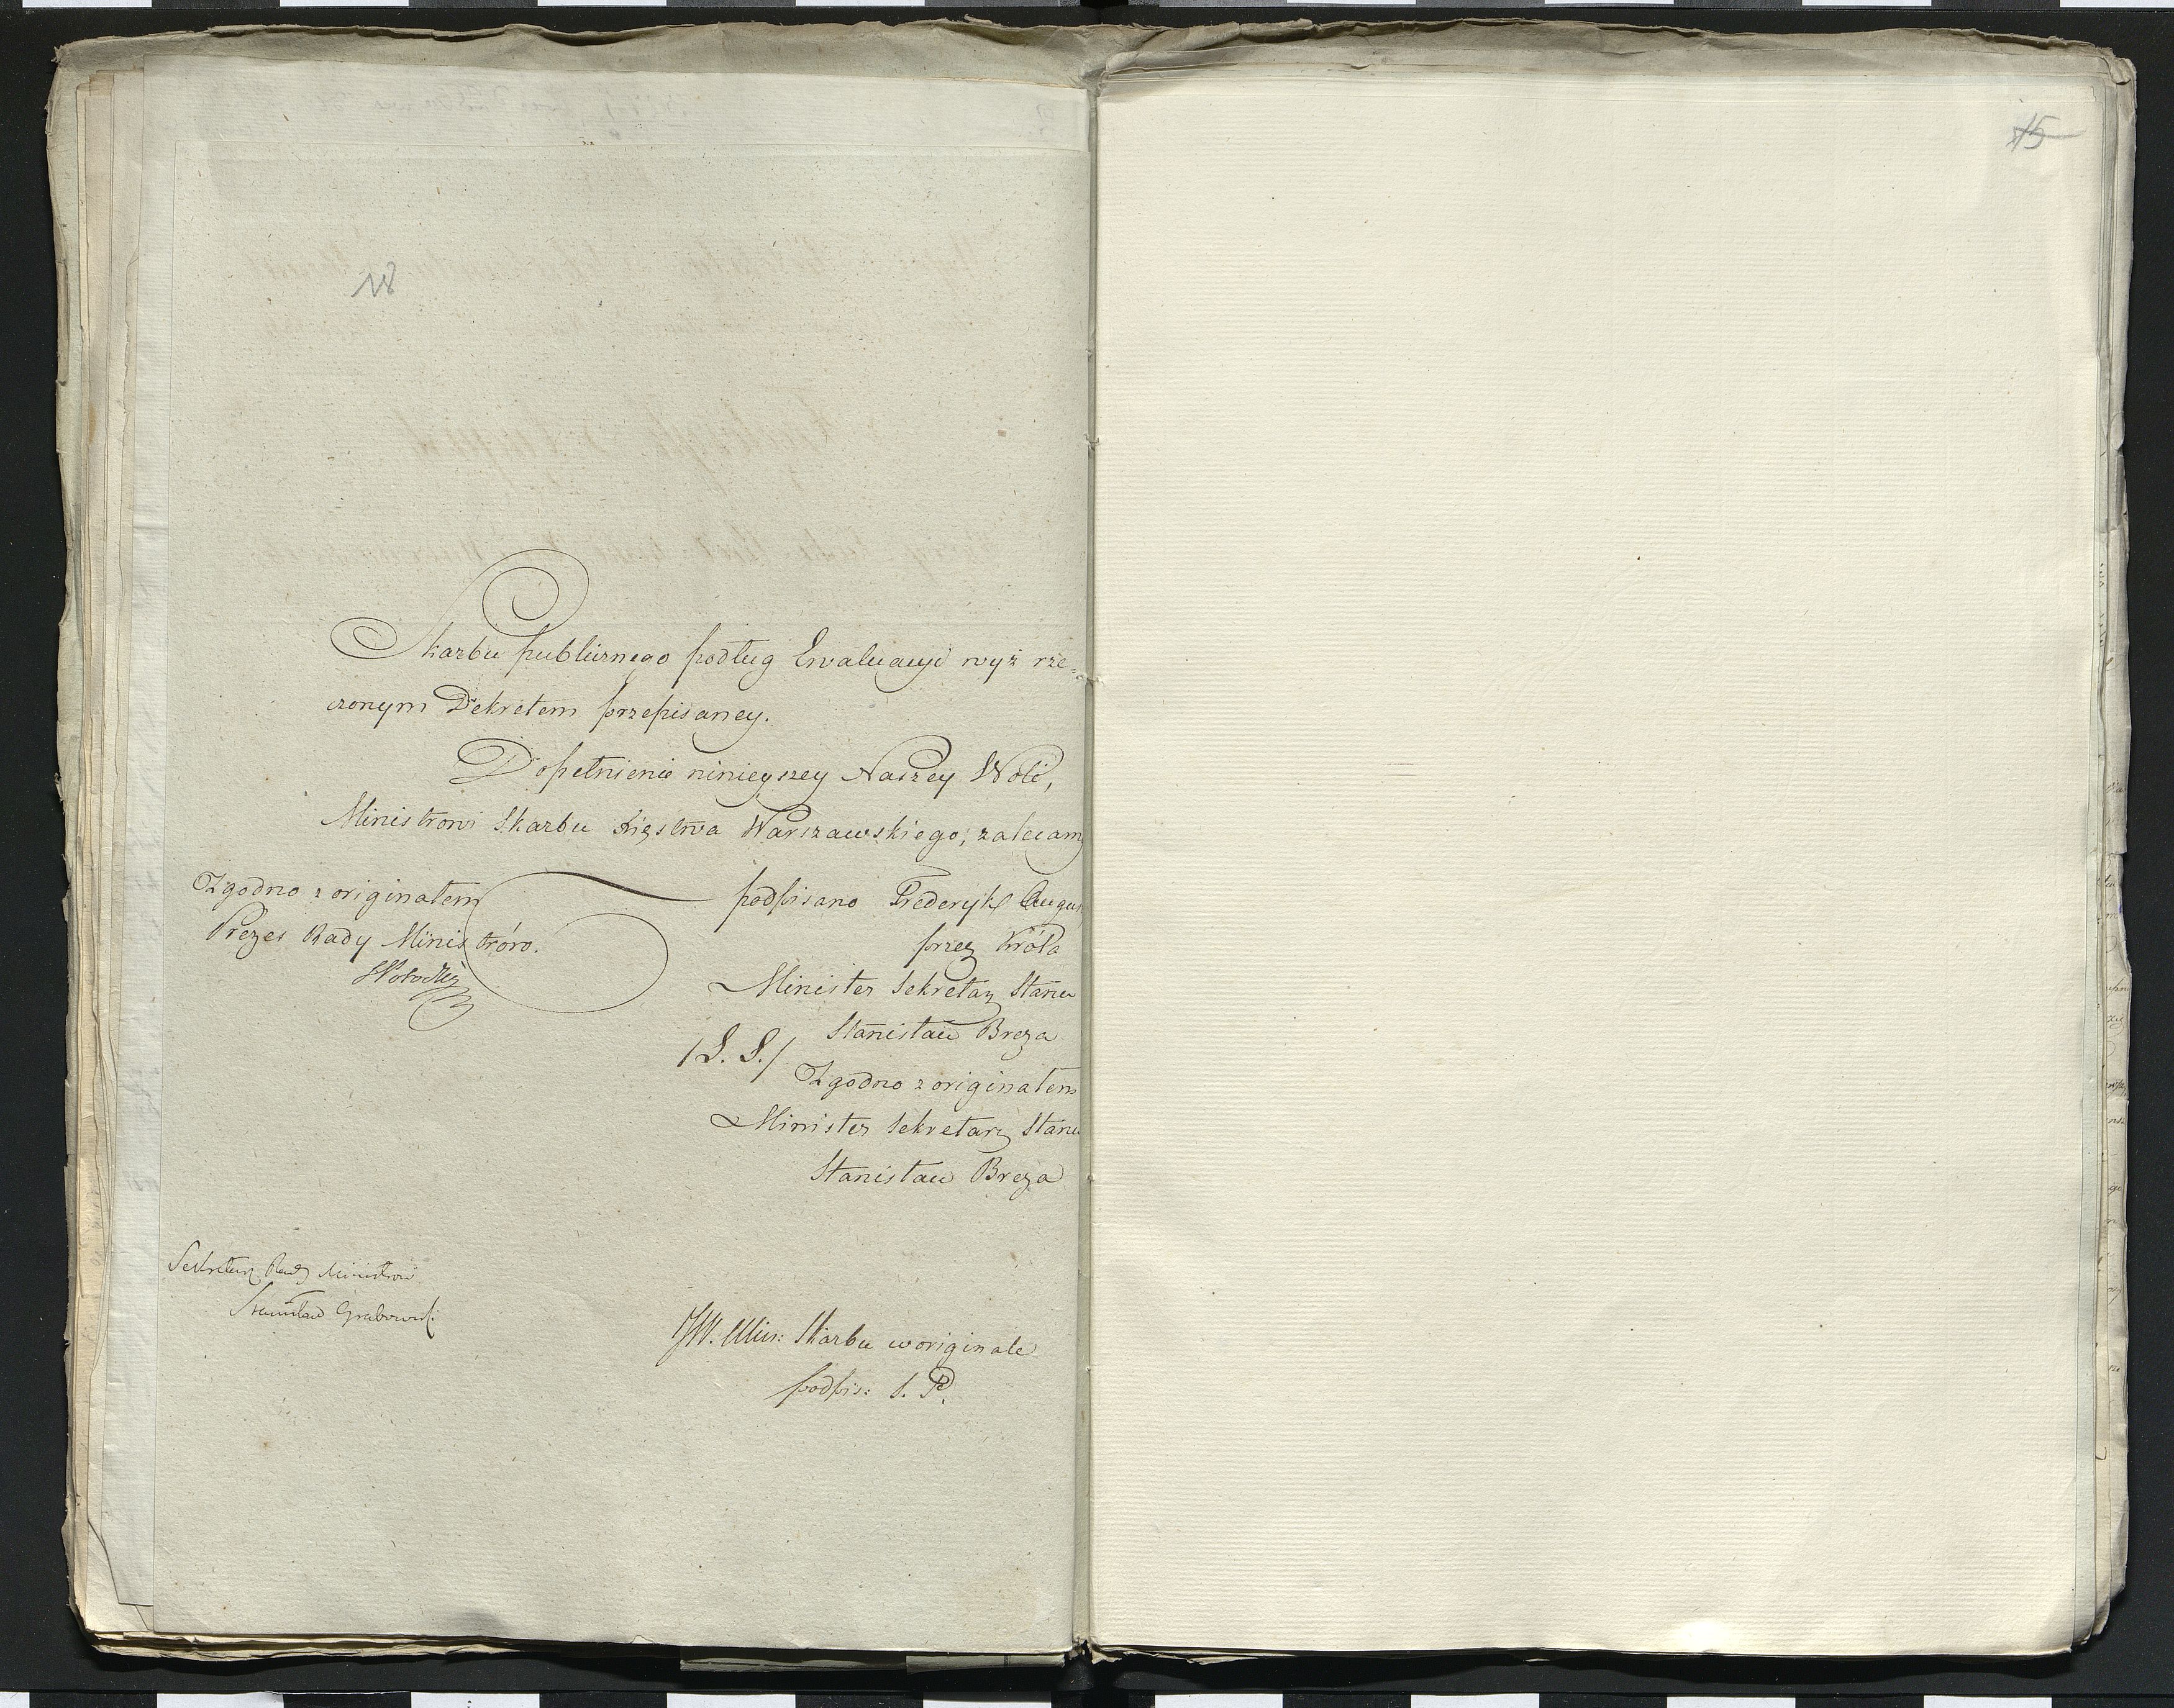 18
15
Skarbu publicznego podług Ewaluacyi wyż rze=
czonym Dekretem przepisaney.
Dopełnienie ninieyszey Naszey Woli,
Ministrowi Skarbu Xięstwa Warszawskiego, zalecamy
podpisano Frederyk Augus
przez Króla
Minister Sekretarz Stanu
Stanisław Breza
/L. S./
Zgodno z originałem
Minister Sekretarz Stanu
Stanisław Breza
Zgodno z originałem
Prezes Rady Ministrów.
Sekretarz Rady Ministrów
Stanisław Grabowski
JW. Min: Skarbu w originale
podpis: